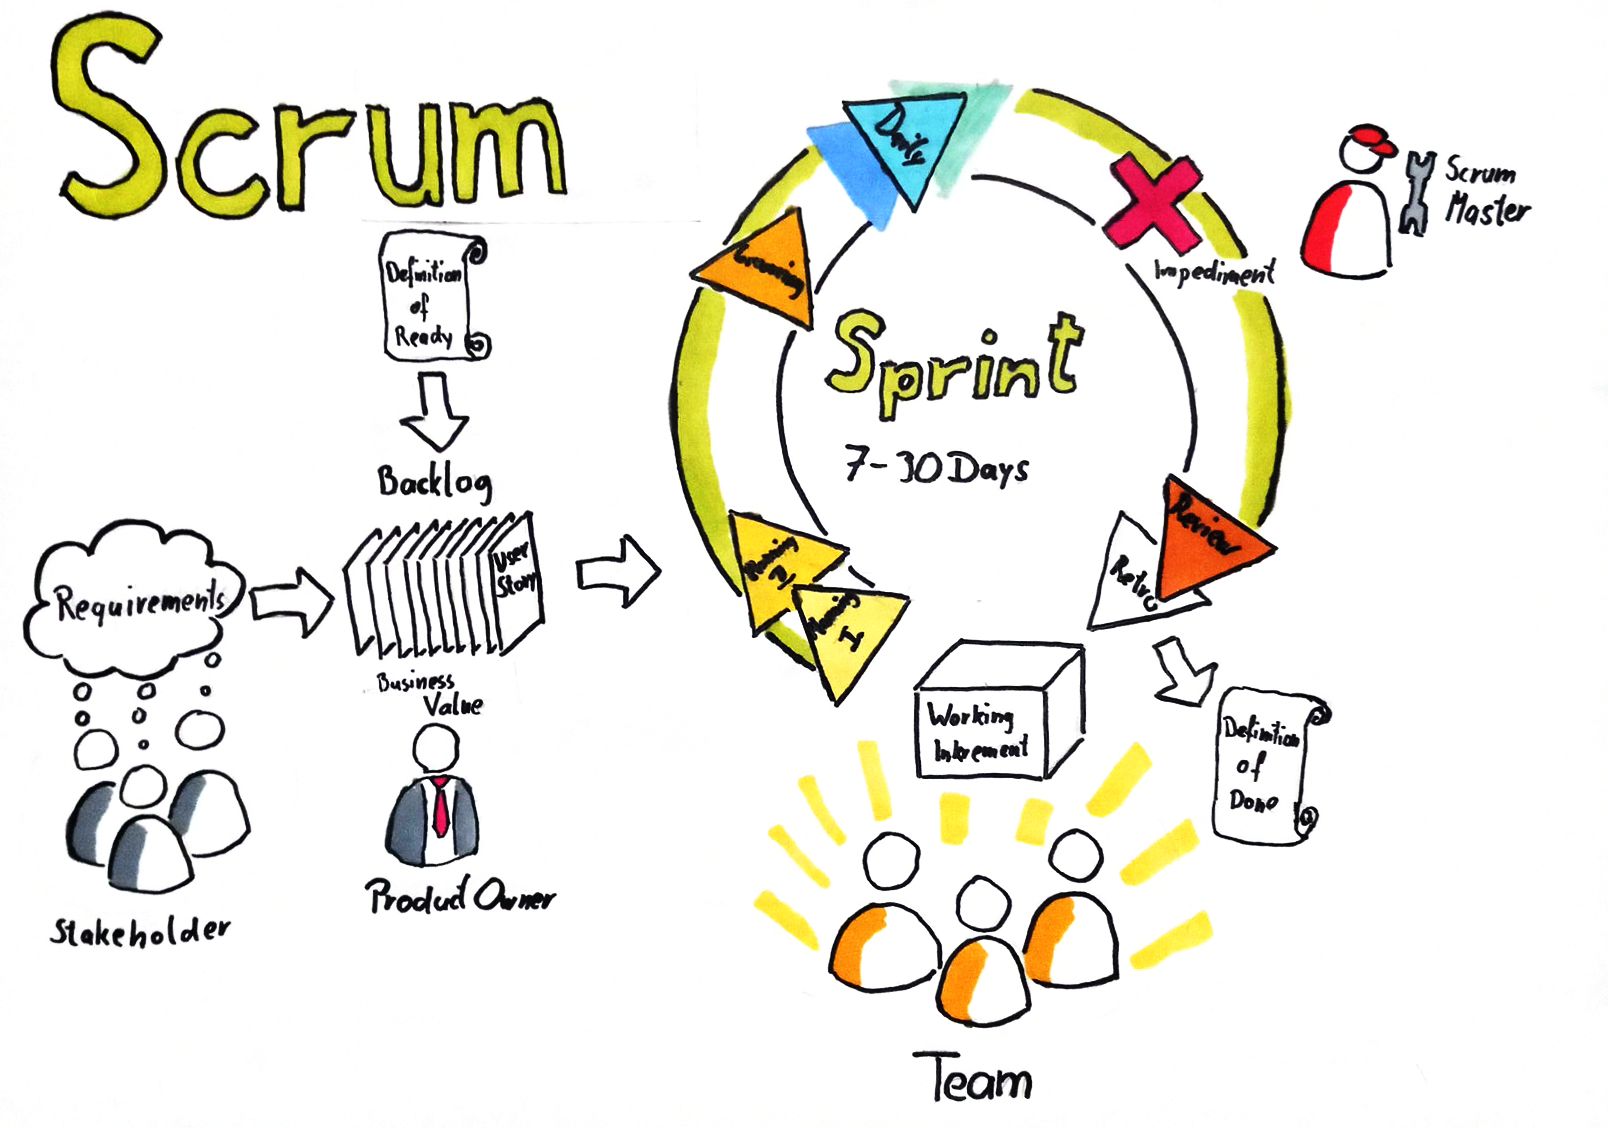 Scrum
Definition
of
Ready
Backlog
Requirements
User
Story
Business
Value
Stakeholder
Product Owner
Daily
Grooming
Planning
II
Planning
I
Sprint
7-30 Days
Impediment
Scrum
Master
Review
Retro
Working
Inkrement
Definition
of
Done
Team